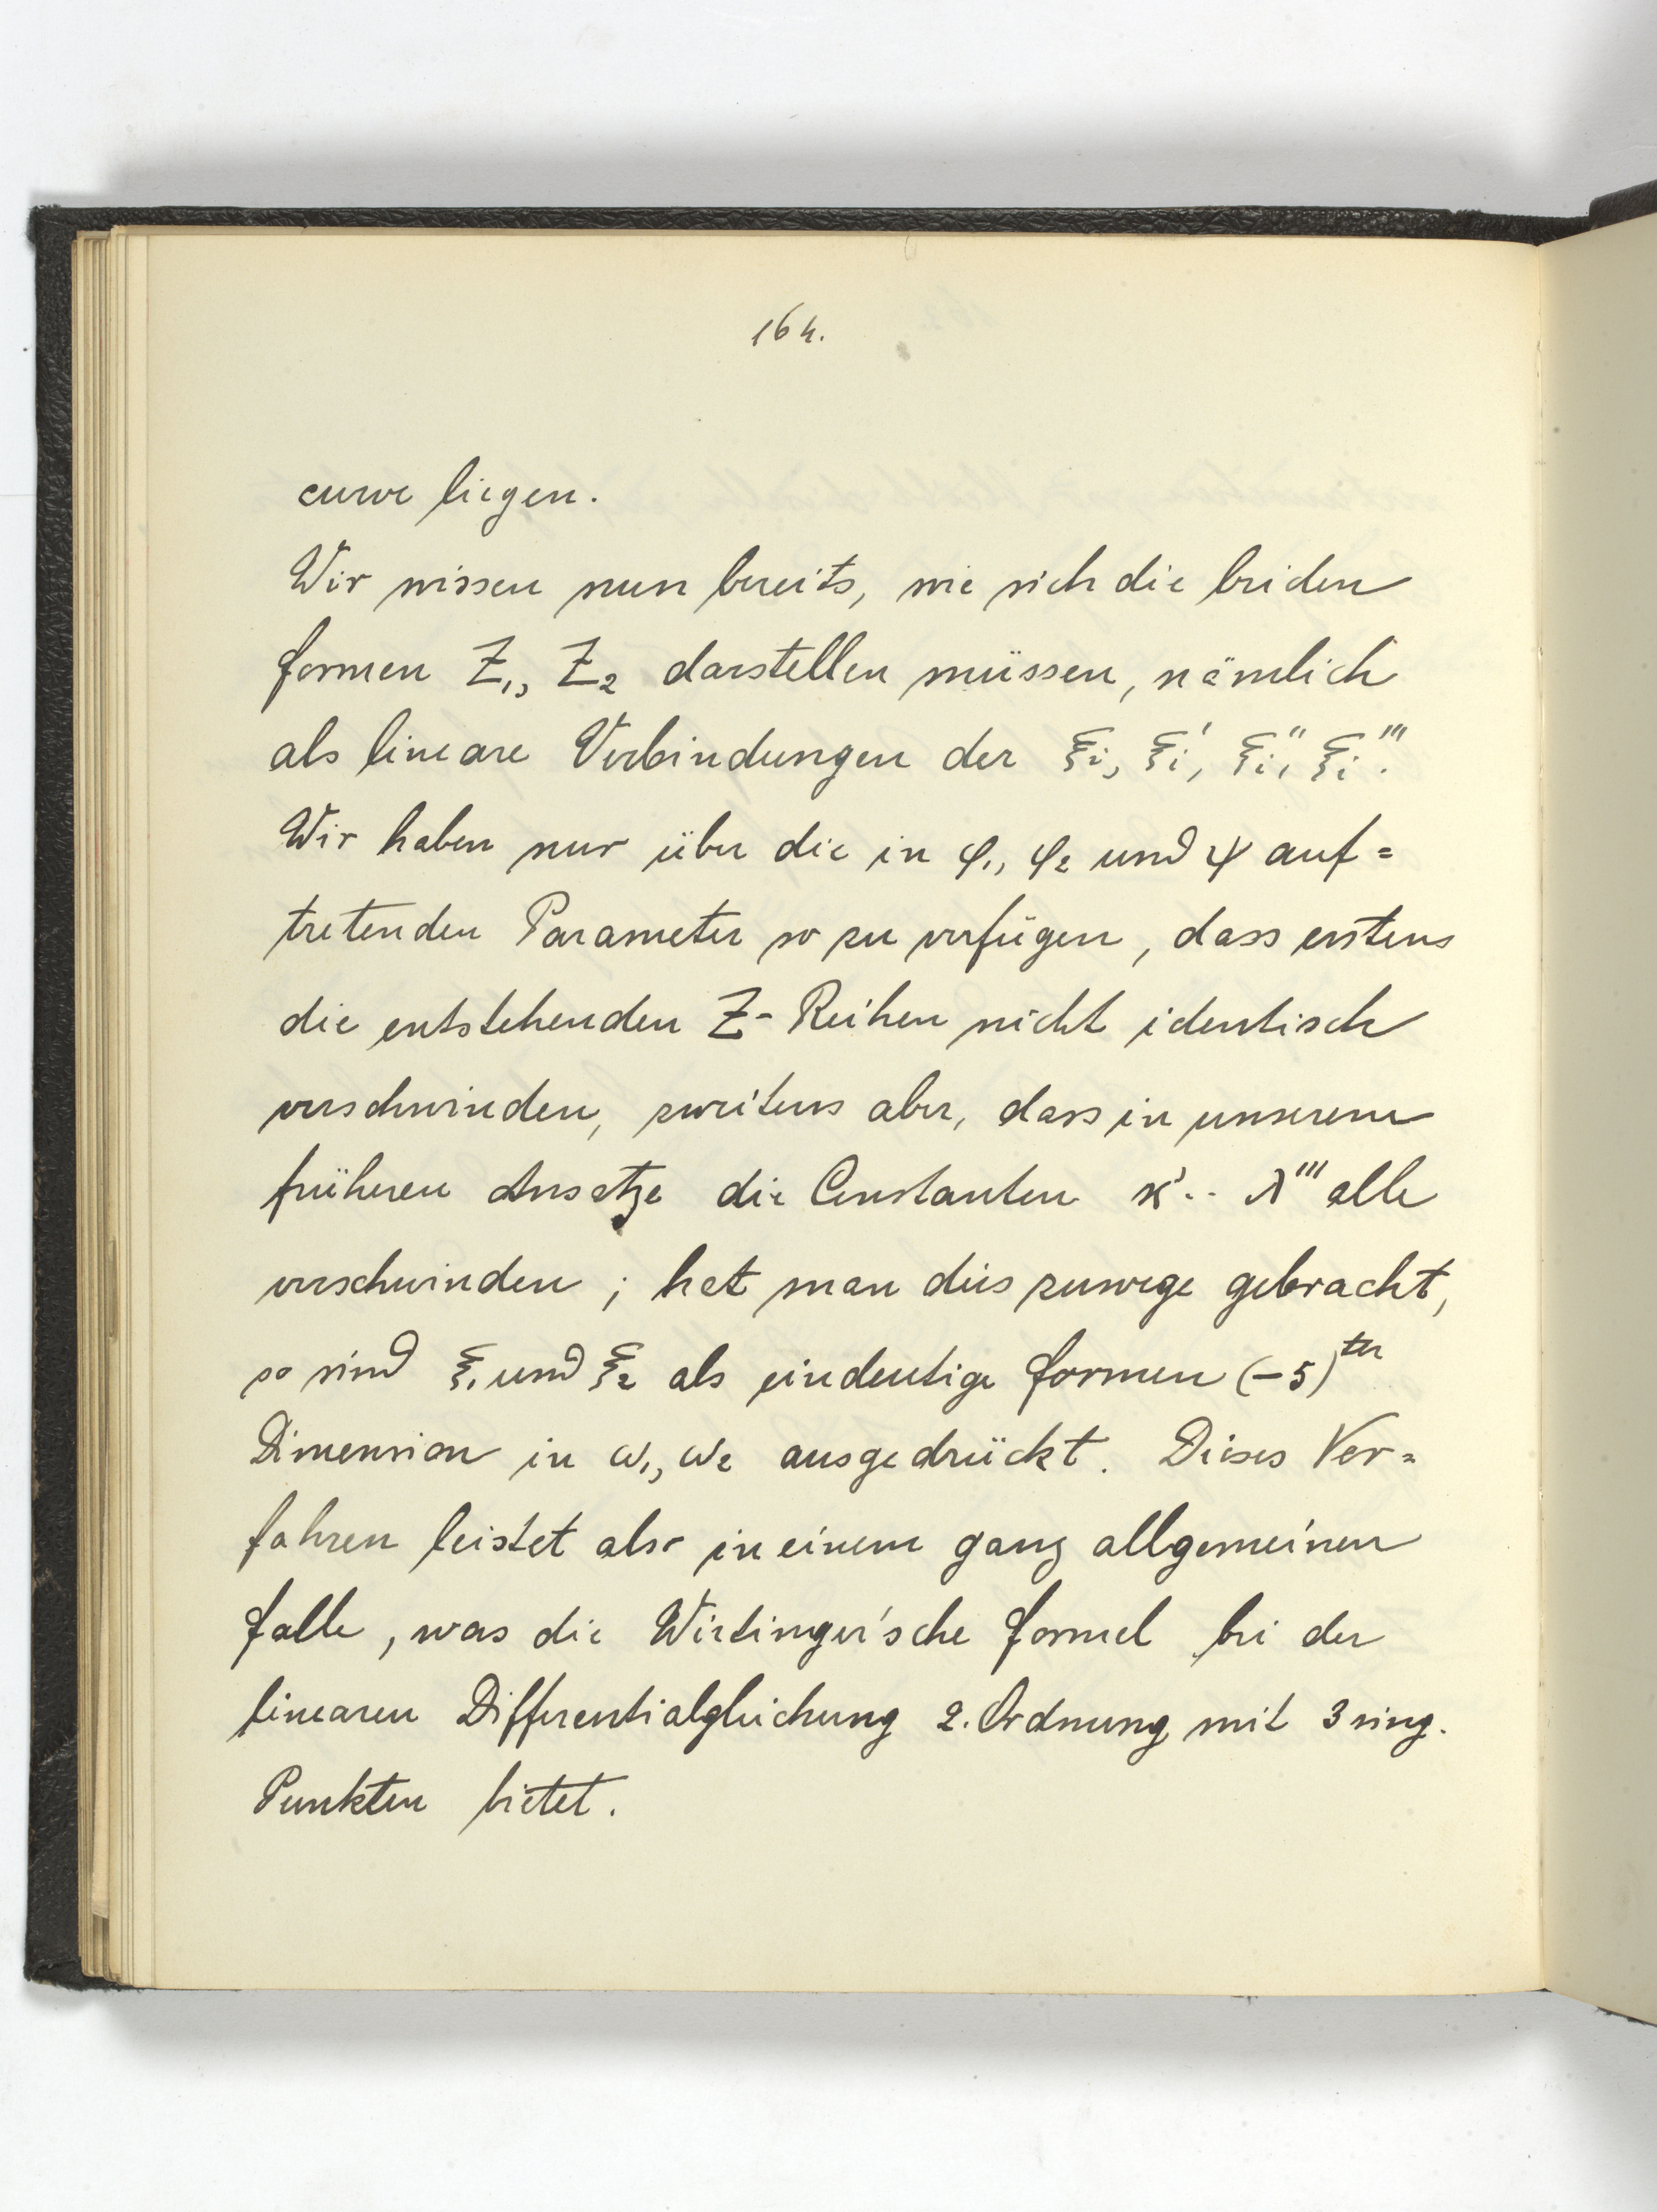 164.
curve liegen.
Wir wissen nun bereits, wie sich die beiden
Formen Z₁, Z₂ darstellen müssen, nämlich
als lineare Verbindungen der ξᵢ, ξᵢ', ξᵢ'', ξᵢ'''.
Wir haben nur über die in φ₁, φ₂ und ψ auf=
tretenden Parameter so zu verfügen, dass erstens
die entstehenden Z-Reihen nicht identisch
verschwinden, zweitens aber, dass in unserem
früheren Ansatze die Constanten ϰ'.. λ''' alle
verschwinden; hat man dies zuwege gebracht,
so sind ξ₁ und ξ₂ als eindeutige Formen (-5)ter
Dimension in ω₁, ω₂ ausgedrückt. Dieses Ver=
fahren leistet also in einem ganz allgemeinen
Falle, was die Wirtinger'sche Formel bei der
linearen Differentialgleichung 2. Ordnung mit 3 sing.
Punkten bietet.